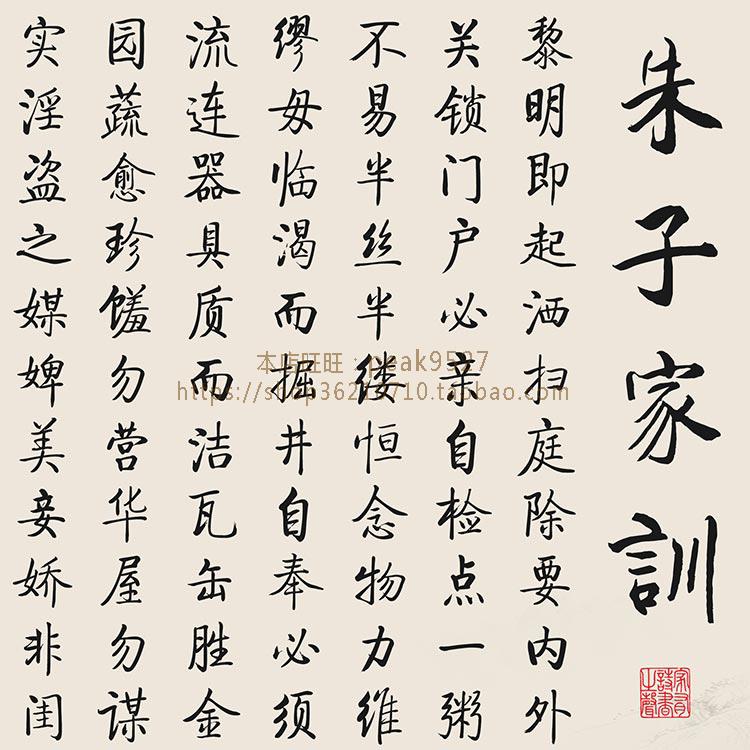 朱子家訓
黎明即起洒扫庭除要内外
关锁门户必亲自检点一粥
不易半丝半缕恒念物力维
缪毋临渴而掘井自奉必须
流连器具质而洁瓦缶胜金
园蔬愈珍馐勿营华屋勿谋
实淫盗之媒婢美妾娇非闺
本店旺旺：peak9527